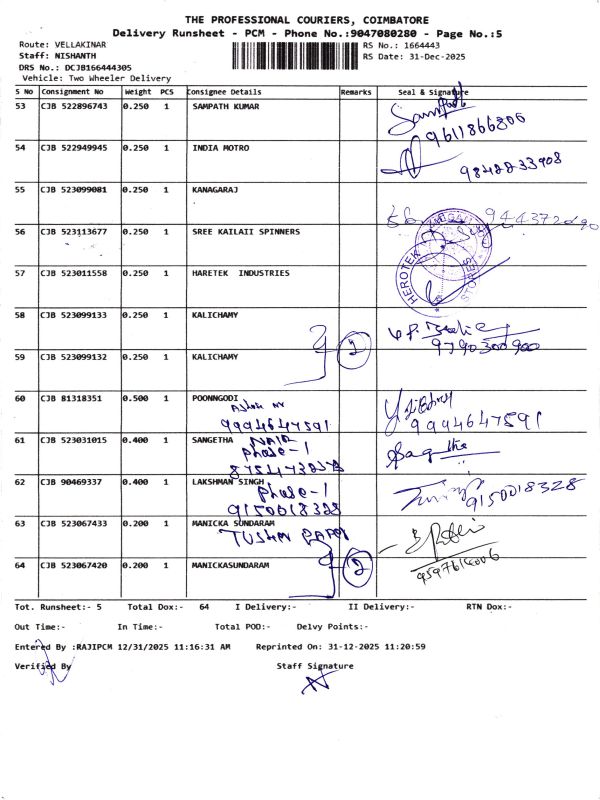 THE PROFESSIONAL COURIERS, COIMBATORE
Delivery Runsheet - PCM - Phone No.:9047080280 - Page No.:5
Route: VELLAKINAR
RS No.: 1664443
Staff: NISHANTH
RS Date: 31-Dec-2025
DRS No.: DCJB166444305
Vehicle: Two Wheeler Delivery
S No Consignment No Weight PCS Consignee Details Remarks Seal & Signature
53 CJB 522896743 0.250 1 SAMPATH KUMAR
9611866806
54 CJB 522949945 0.250 1 INDIA MOTRO
9848833908
55 CJB 523099081 0.250 1 KANAGARAJ
56 CJB 523113677 0.250 1 SREE KAILAII SPINNERS
HEROTEK
STORES
57 CJB 523011558 0.250 1 HARETEK INDUSTRIES
58 CJB 523099133 0.250 1 KALICHAMY
2
9790300900
59 CJB 523099132 0.250 1 KALICHAMY
60 CJB 81318351 0.500 1 POONNGODI
9994647591
9994647591
61 CJB 523031015 0.400 1 SANGETHA
Phase-1
62 CJB 90469337 0.400 1 LAKSHMAN SINGH
Phase-1
9150018328
9150018328
63 CJB 523067433 0.200 1 MANICKA SUNDARAM
64 CJB 523067420 0.200 1 MANICKASUNDARAM
2
Tot. Runsheet:- 5 Total Dox:- 64 I Delivery:- II Delivery:- RTN Dox:-
Out Time:- In Time:- Total POD:- Delvy Points:-
Entered By :RAJIPCM 12/31/2025 11:16:31 AM Reprinted On: 31-12-2025 11:20:59
Verified By Staff Signature